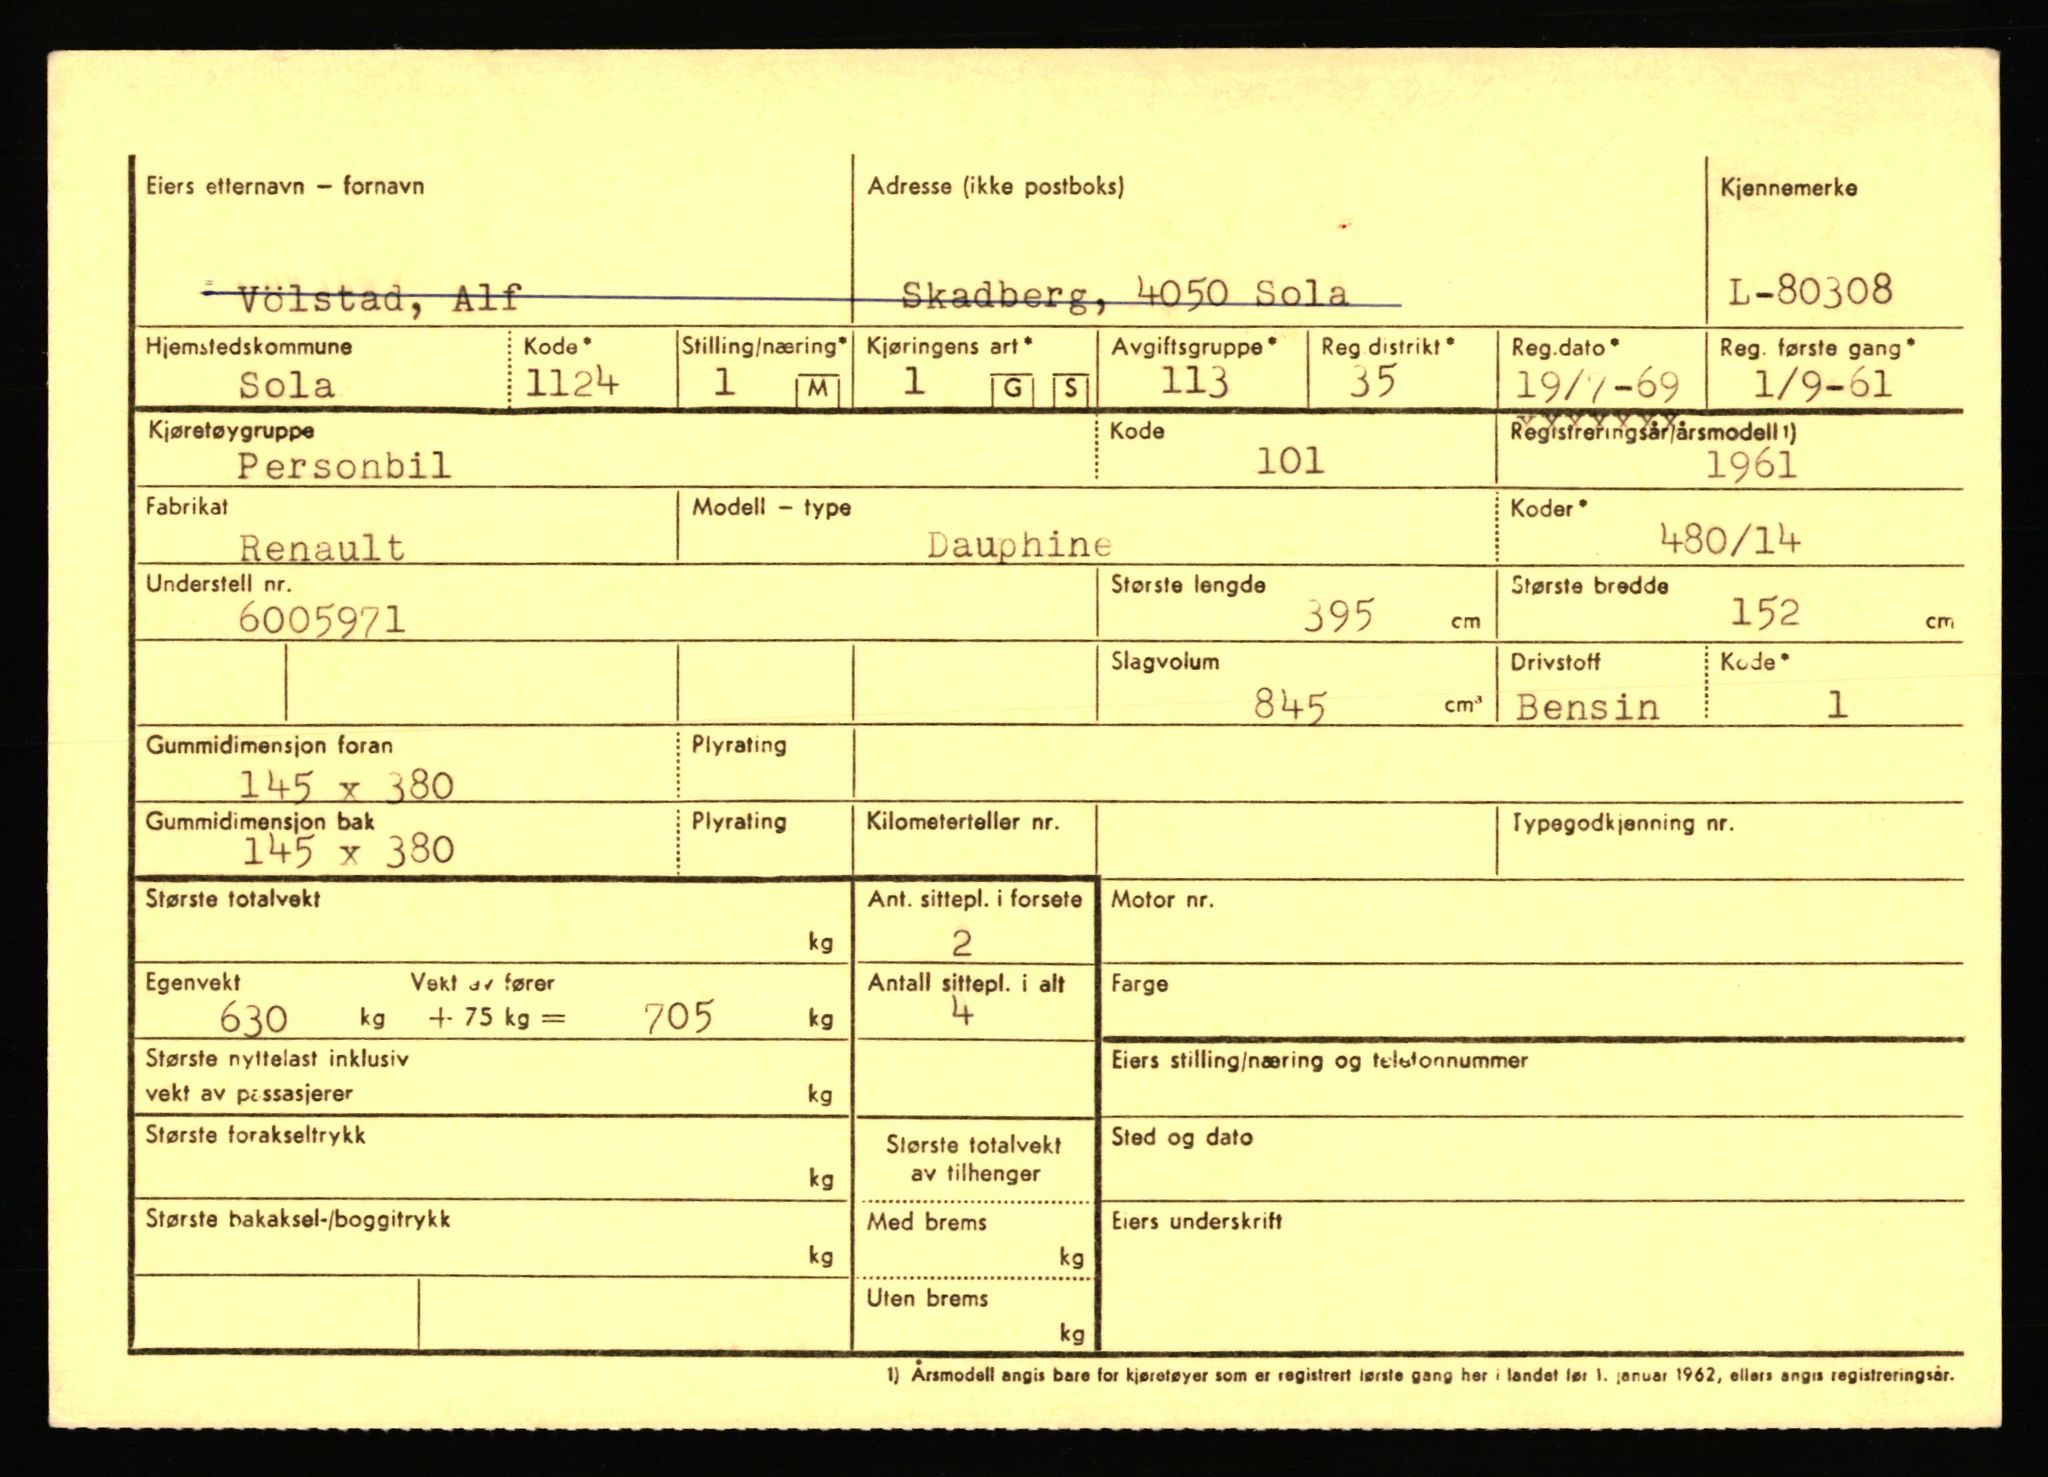 Eiers etternavn – fornavn Adresse (ikke postboks) Kjennemerke
Völstad, Alf Skadberg, 4050 Sola L-80308
Hjemstedskommune Kode* Stilling/næring* Kjøringens art* Avgiftsgruppe* Reg.distrikt* Reg.dato* Reg. første gang*
Sola 1124 1 M 1 G S 113 35 19/7-69 1/9-61
Kjøretøygruppe Kode Registreringsår/årsmodell 1)
Personbil 101 1961
Fabrikat Modell – type Koder*
Renault Dauphine 480/14
Understell nr. Største lengde Største bredde
6005971 395 cm 152 cm
Slagvolum Drivstoff Kode*
845 cm³ Bensin 1
Gummidimensjon foran Plyrating
145 x 380
Gummidimensjon bak Plyrating Kilometerteller nr. Typegodkjenning nr.
145 x 380
Største totalvekt Ant. sittepl. i forsete Motor nr.
kg 2
Egenvekt Vekt av fører Antall sittepl. i alt Farge
630 kg + 75 kg = 705 kg 4
Største nyttelast inklusiv Eiers stilling/næring og telefonnummer
vekt av passasjerer kg
Største forakseltrykk Største totalvekt Sted og dato
kg av tilhenger
Største bakaksel-/boggitrykk Med brems Eiers underskrift
kg kg
Uten brems
kg
1) Årsmodell angis bare for kjøretøyer som er registrert første gang her i landet før 1. januar 1962, ellers angis registreringsår.